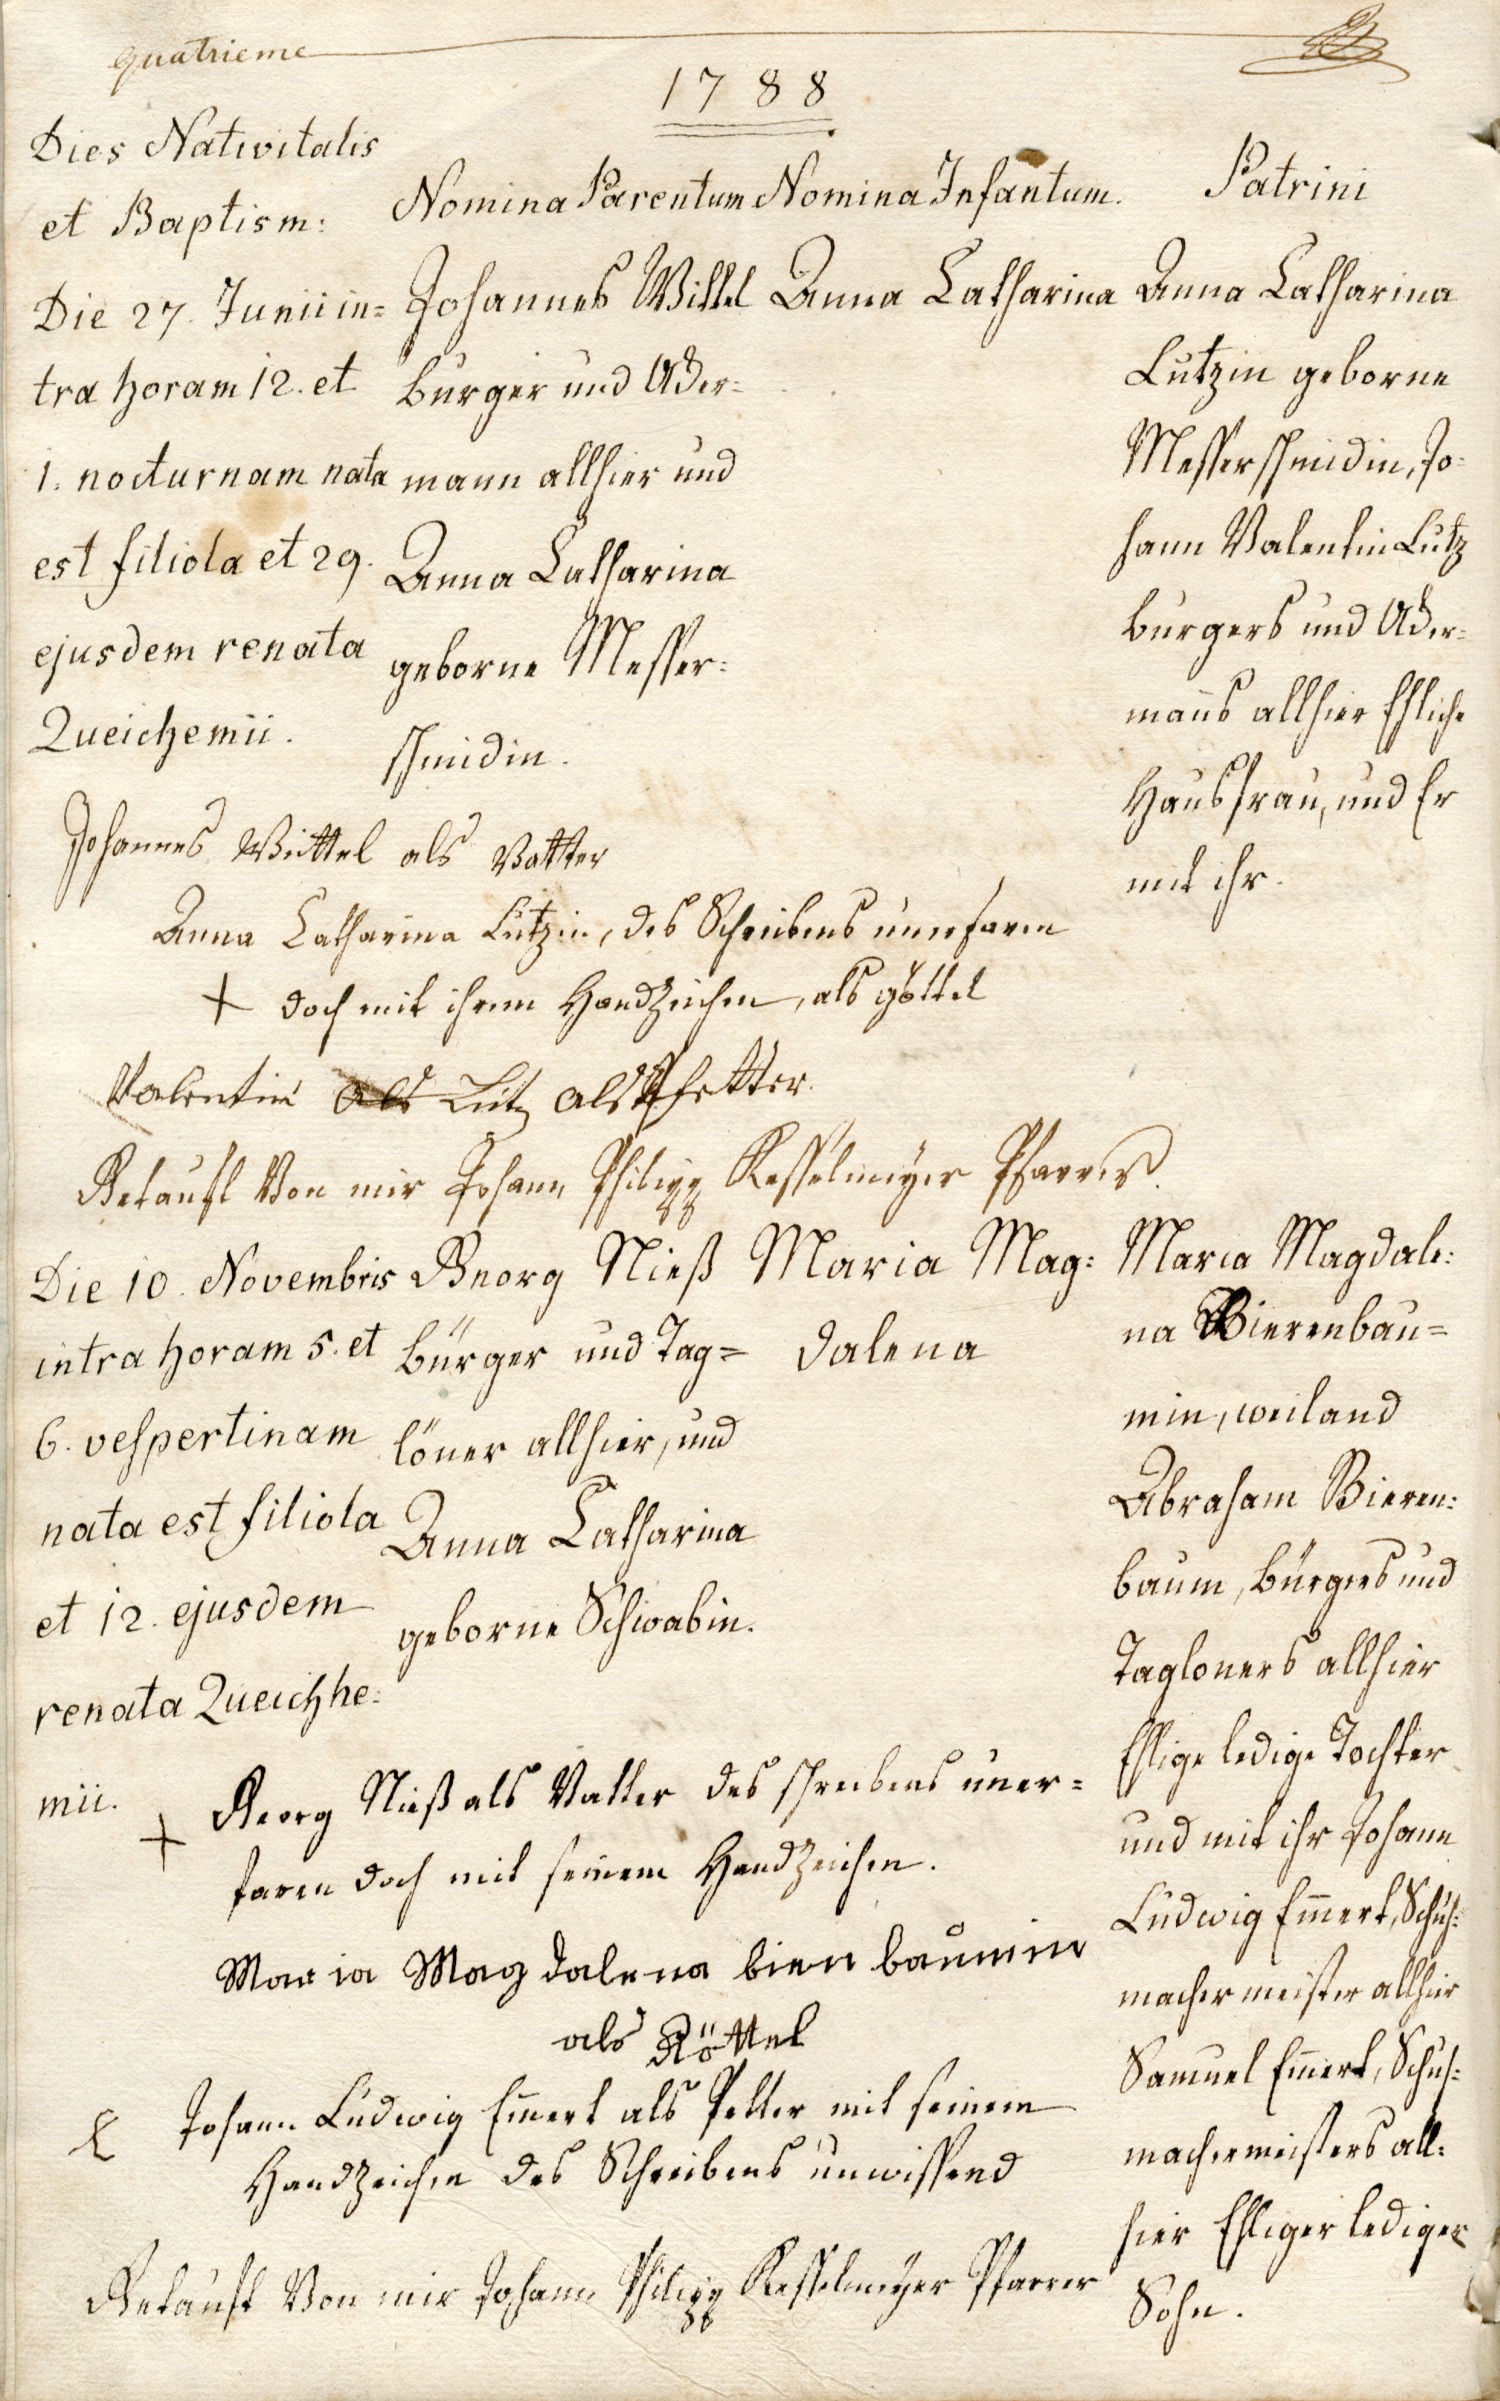 quatrieme
1788
Dies Nativitatis
et Baptism:
Nomina Parentum
Nomina Infantum.
Patrini
Die 27. Junii in=
tra horam 12. et
1. nocturnam nata
est filiola et 29.
ejusdem renata
Queichemii.
Johannes Wittel
burger und Acker=
mann allhier und
Anna Catharina
geborne Messer=
schmidin.
Anna Catharina
Anna Catharina
Lutzin geborne
Messerschmidin, Jo=
hann Valentin Lutz
burgers und Acker=
mañs allhier Ehliche
Hausfrau, und Er
mit ihr.
Johannes Wittel als Vatter
Anna Catharina Lutzin, des Schreibens unerfaren
+ doch mit ihrem Handzeichen, als göttel
Valentin als Lutz als Pfetter.
Getauft Von mir Johann Philipp Kesselmeyer Pfarrer.
Die 10. Novembris
intra horam 5. et
6. vespertinam
nata est filiola
et 12. ejusdem
renata Queichhe=
mii.
Georg Nieß
bürger und Tag=
löner allhier, und
Anna Catharina
geborne Schwabin.
Maria Mag=
dalena
Maria Magdale=
na Bierenbau=
min, weiland
Abraham Bieren=
baum, bürgers und
Tagloners allhier
Ehlige ledige Tochter
und mit ihr Johann
Ludwig Em̄ert, Schuh=
macher meister allhier
Samuel Em̄ert, Schuh=
machermeisters all=
hier Ehliger lediger
Sohn.
+ Georg Nieß als Vatter des schreibens uner=
faren doch mit seinem Handzeichen.
Maria Magdalena bierbaumin
als Göttel
Johann Ludwig Em̄ert als Petter mit seinem
Handzeichen des Schreibens unwissend
Getauft Von mir Johann Philipp Kesselmeyer Pfarrer